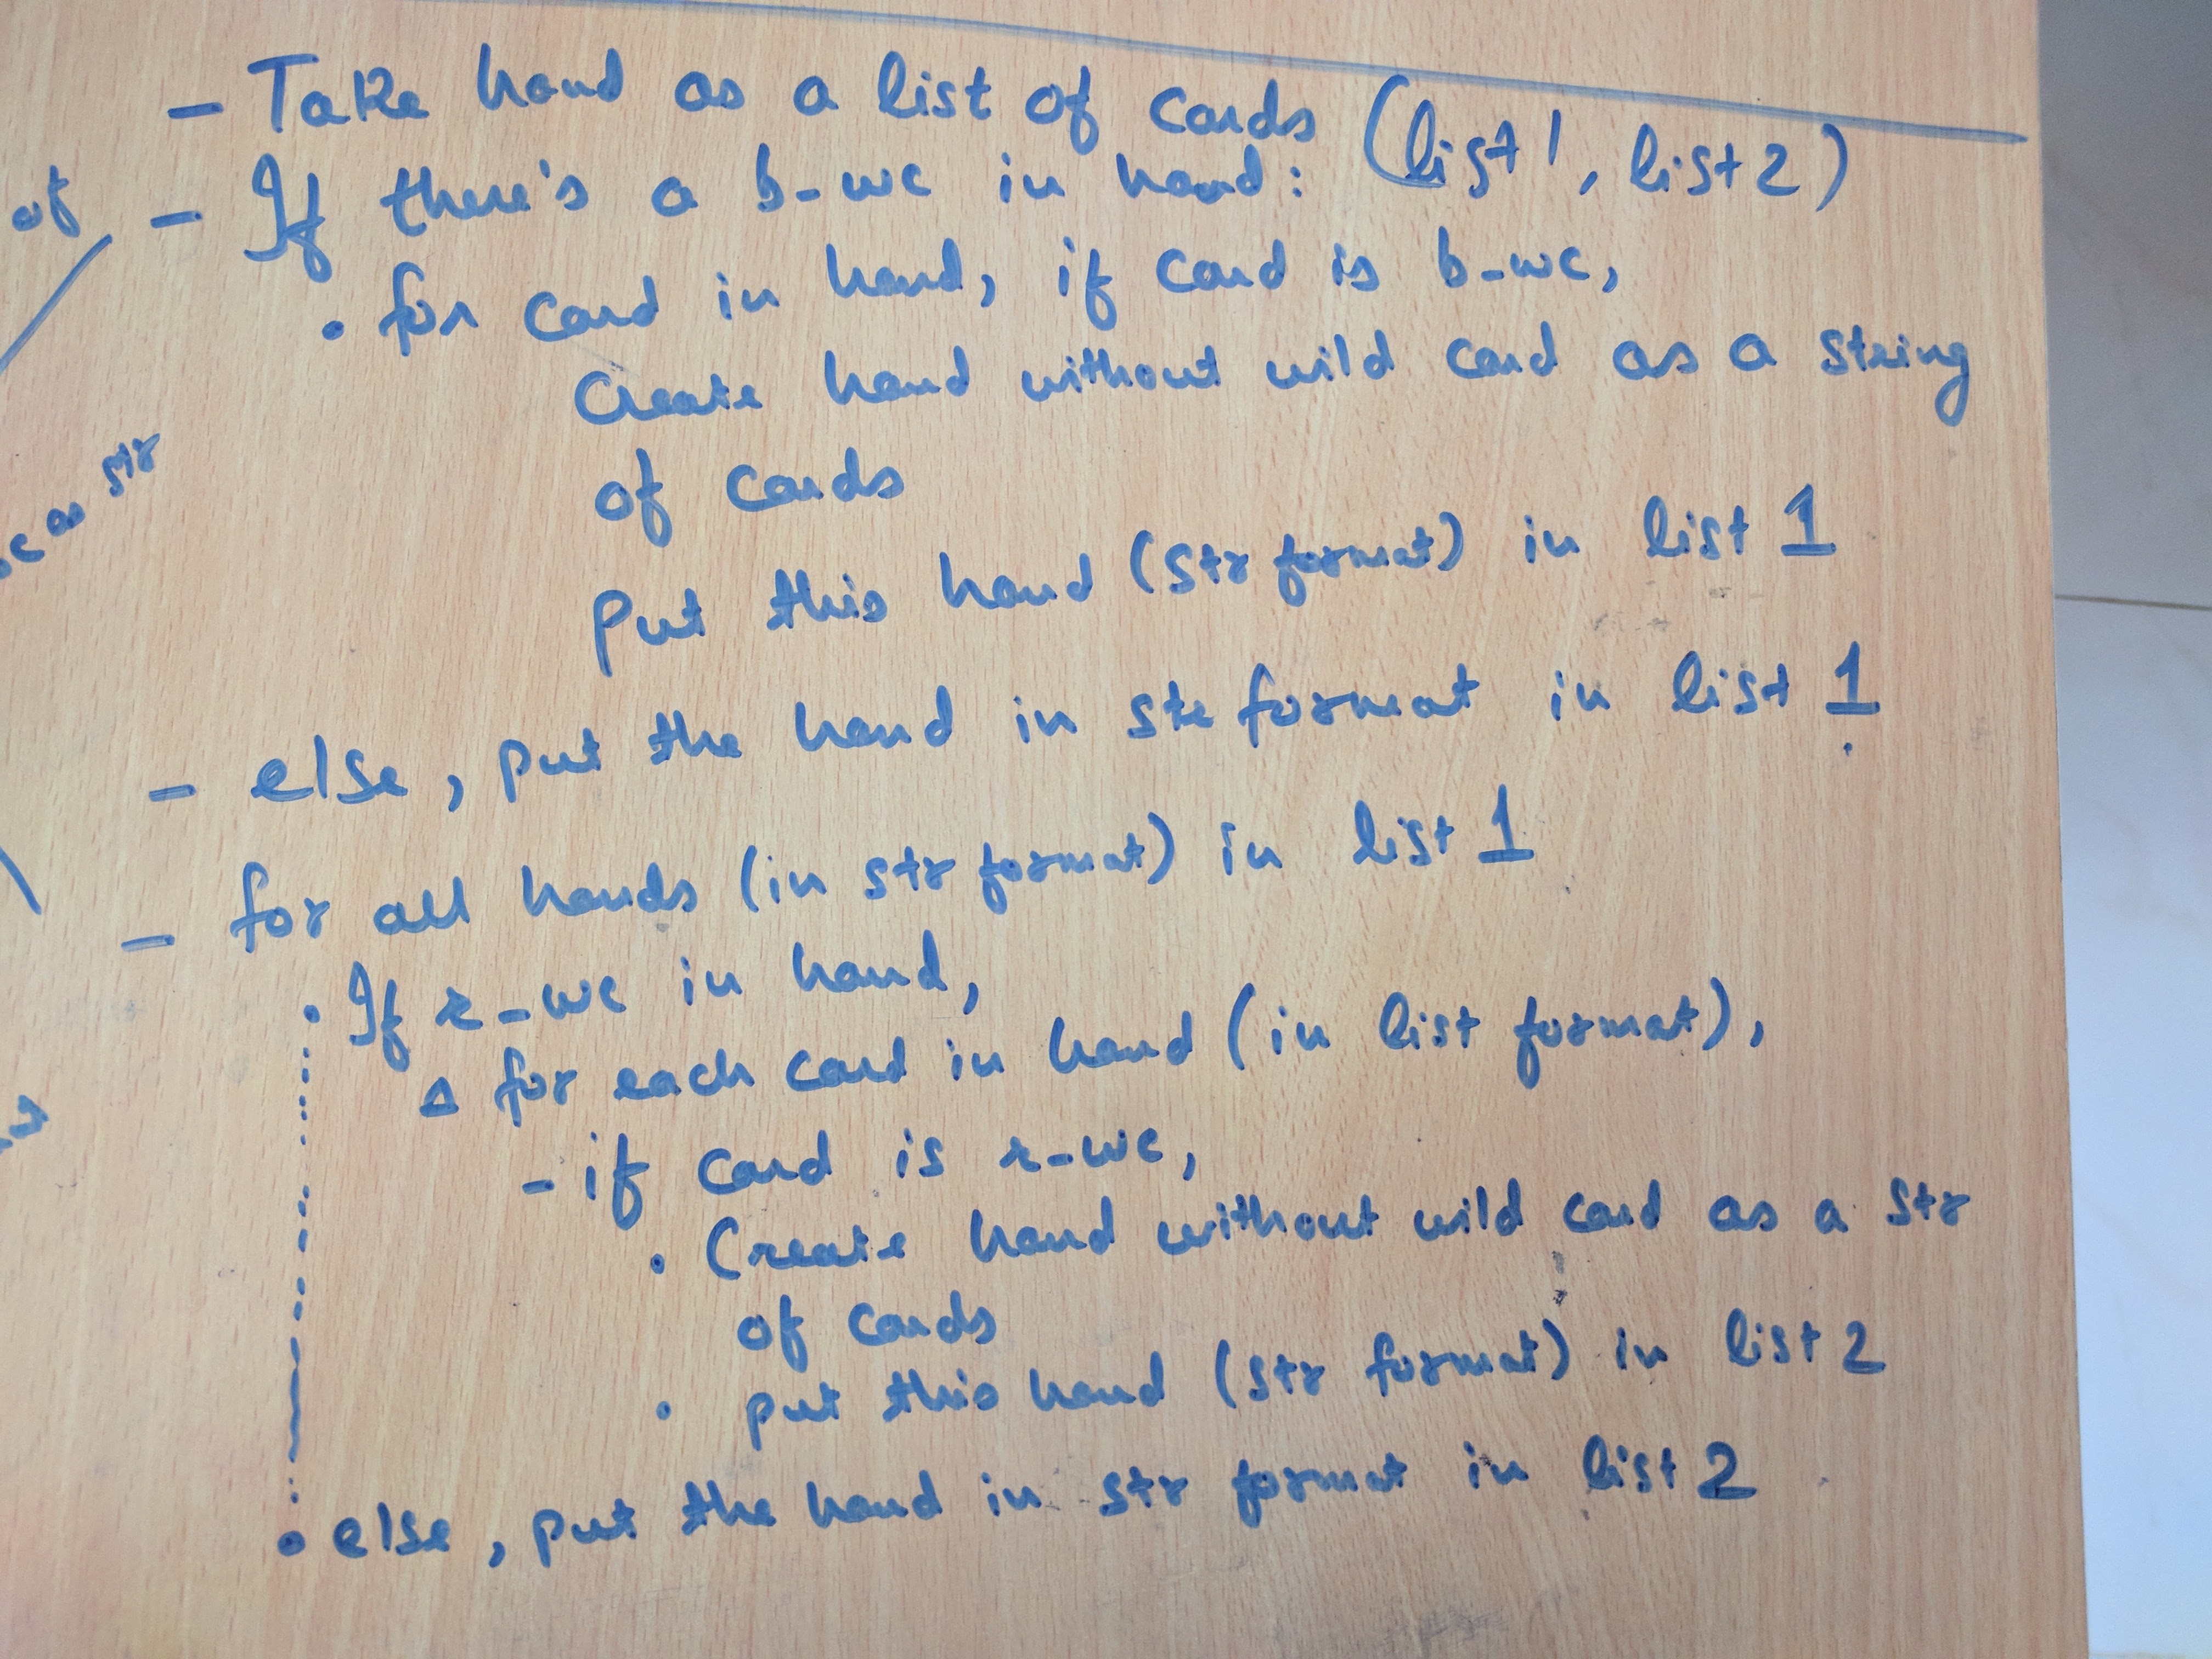 - Take hand as a list of cards (list 1, list 2)
- If there's a b-wc in hand:
• for card in hand, if card is b-wc,
Create hand without wild card as a string
of cards
Put this hand (str format) in list 1
- else, put the hand in str format in list 1
- for all hands (in str format) in list 1
• If r-wc in hand,
△ for each card in hand (in list format),
- if card is r-wc,
• Create hand without wild card as a str
of cards
• put this hand (str format) in list 2
• else, put the hand in str format in list 2
of
as str